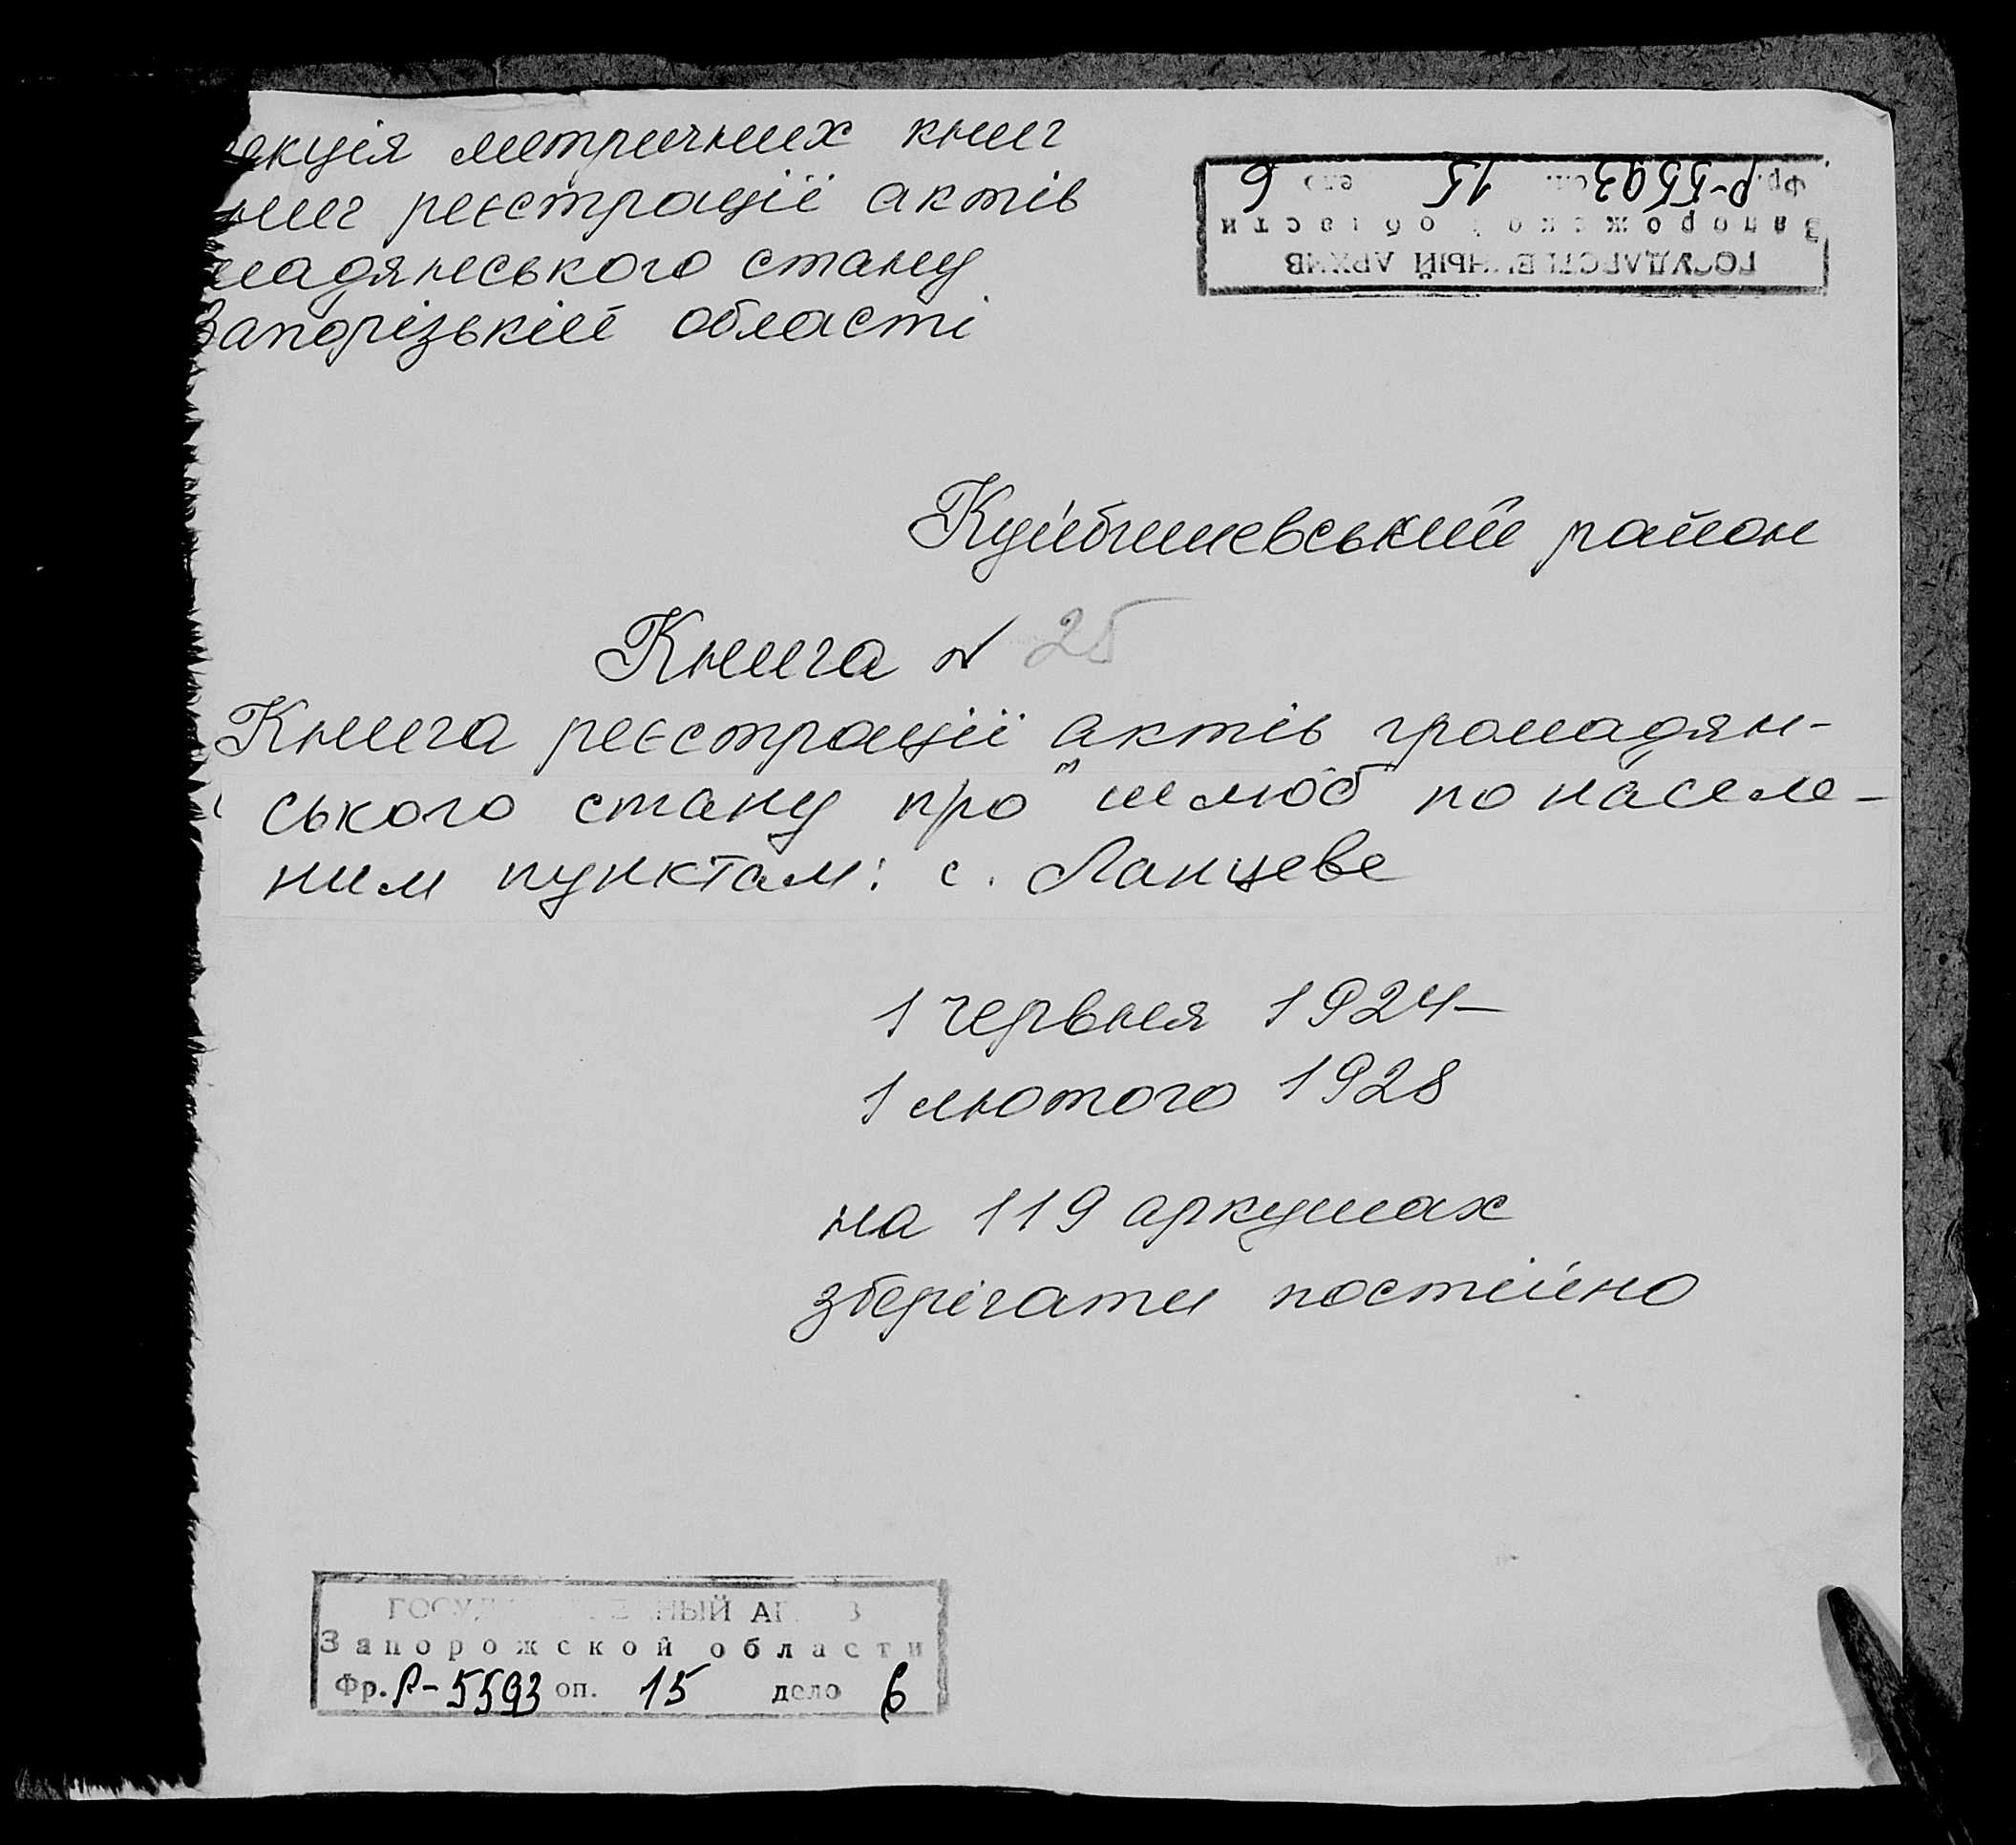 екція метричних книг
ниг реєстрації актів
мадянського стану
Запорізькій області
Фр. Р-5593 оп. 15 ело 6
Запорожской области
ГОСУДАРСТВЕННЫЙ АРХИВ
Куйбишевський район
Книга № 25
Книга реєстрації актів громадян-
ського стану про "шлюб" по населе-
ним пунктам: с. Ланцеве
1 червня 1924-
1 лютого 1928
на 119 аркушах
зберігати постійно
Запорожской области
Фр. Р-5593 оп. 15 дело 6